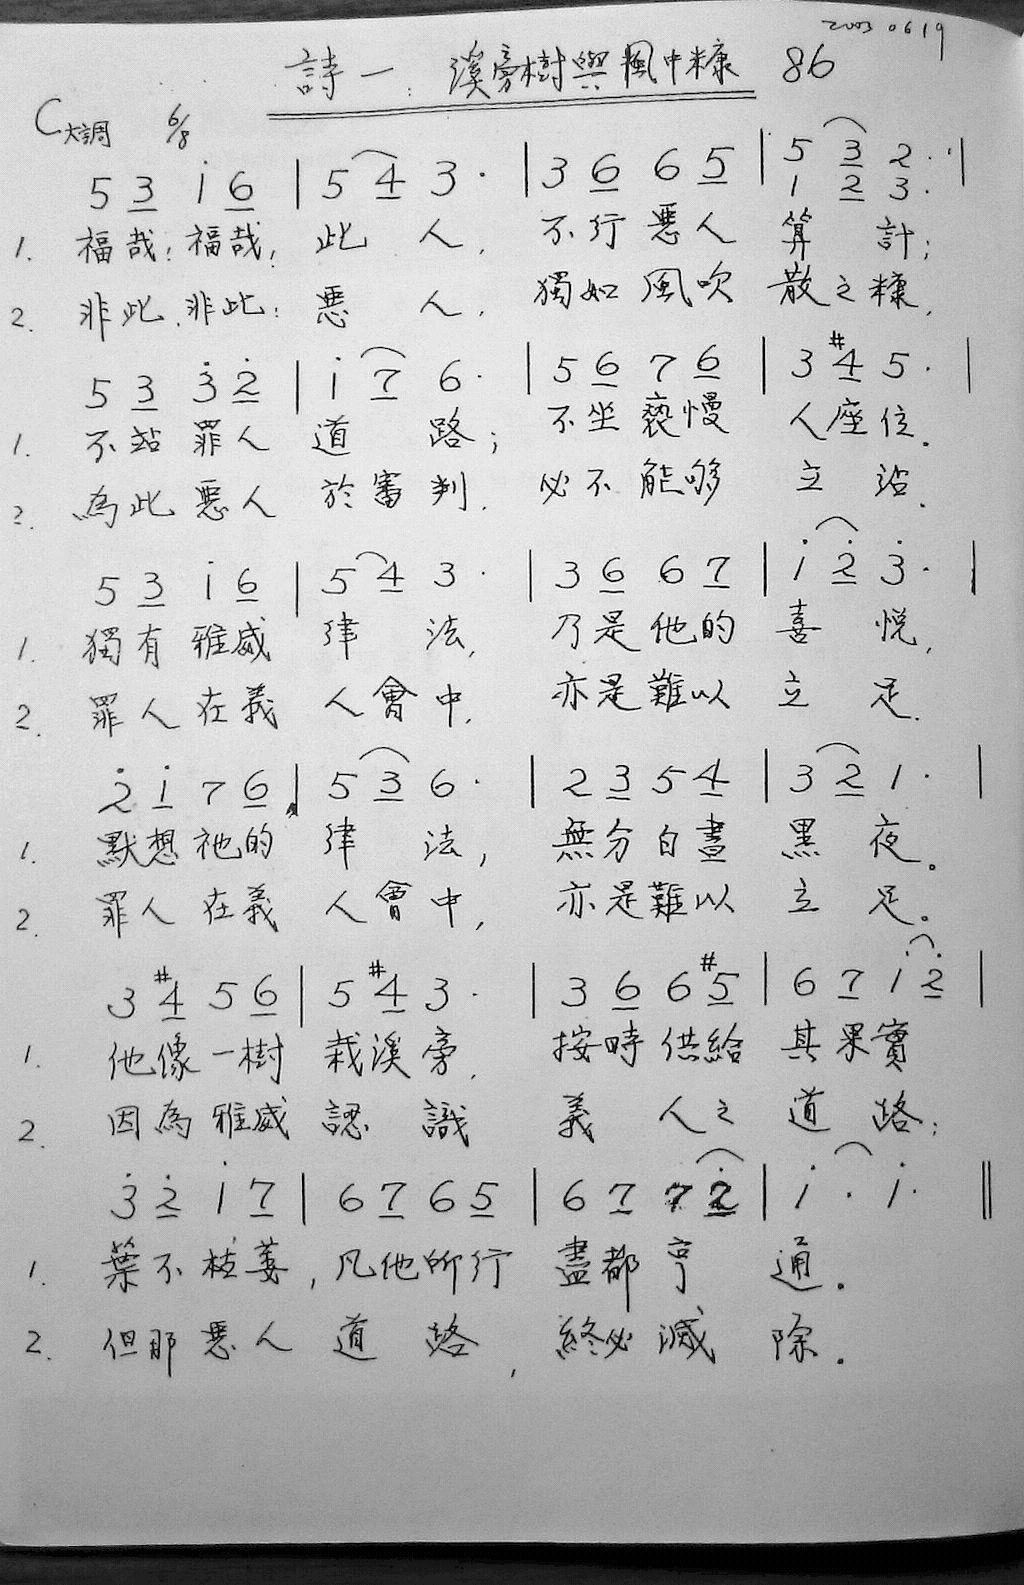 2003 06 19
詩一：溪旁樹與風中糠 86
C大調 6/8
5 3 i 6 | 5 4 3 · | 3 6 6 5 | 5 3 2 · |
1 2 3 ·
1. 福哉！福哉！此人，不行惡人算計；
2. 非此、非此！惡人，獨如風吹散之糠，
5 3 3̇ 2̇ | i 7 6 · | 5 6 7 6 | 3 #4 5 · |
1. 不站罪人道路；不坐褻慢人座位。
2. 為此惡人於審判，必不能够立站。
5 3 i 6 | 5 4 3 · | 3 6 6 7 | i 2̇ 3̇ · |
1. 獨有雅威律法，乃是他的喜悅，
2. 罪人在義人會中，亦是難以立足。
2̇ i 7 6 | 5 3 6 · | 2 3 5 4 | 3 2 1 · |
1. 默想祂的律法，無分白晝黑夜。
2. 罪人在義人會中，亦是難以立足。
3 #4 5 6 | 5 #4 3 · | 3 6 6 #5 | 6 7 i 2̇ |
1. 他像一樹栽溪旁，按時供給其果實
2. 因為雅威認識義人之道路；
3̇ 2̇ i 7 | 6 7 6 5 | 6 7 7 2̇ | i · i · ||
1. 葉不枯萎，凡他所行盡都亨通。
2. 但那惡人道路，終必滅除。